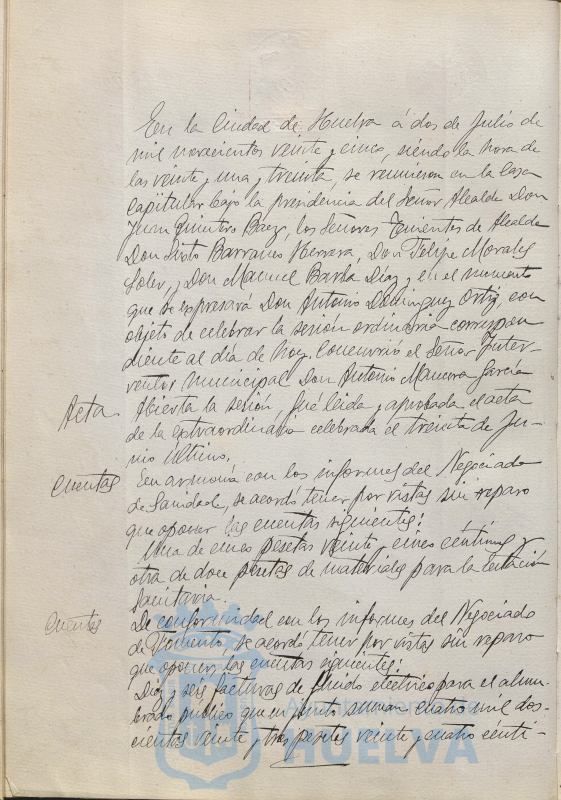 En la Ciudad de Huelva á dos de Julio de
mil novecientos veinte y cinco, siendo la hora de
las veinte y una y treinta, se reunieron en la Casa
Capitular bajo la presidencia del Señor Alcalde Don
Juan Quintero Baez, los Señores Tenientes de Alcalde
Don Sixto Barranco Herrera, Don Felipe Morales
Soler, y Don Manuel Barba Díaz, y en el momento
que se expresará Don Antonio Dominguez Ortiz, con
objeto de celebrar la sesión ordinaria correspon
diente al día de hoy. Concurrió el Señor Inter-
ventor Municipal Don Antonio Mancera García
Acta. Abierta la sesión, fué leida y aprobada el acta
de la extraordinaria celebrada el treinta de Ju-
nio último.
Cuentas En armonía con los informes del Negociado
de Sanidad, se acordó tener por vistas sin reparo
que oponer las cuentas siguientes:
Una de cinco pesetas veinte y cinco céntimos y
otra de doce pesetas de materiales para la Estación
Sanitaria.
Cuentas De conformidad con los informes del Negociado
de Fomento, se acordó tener por vistas sin reparo
que oponer, las cuentas siguientes:
Diez y seis facturas de fluido electrico para el alum-
brado público que en junto suman cuatro mil dos-
cientas veinte y tres pesetas veinte y cuatro cénti-
HUELVA